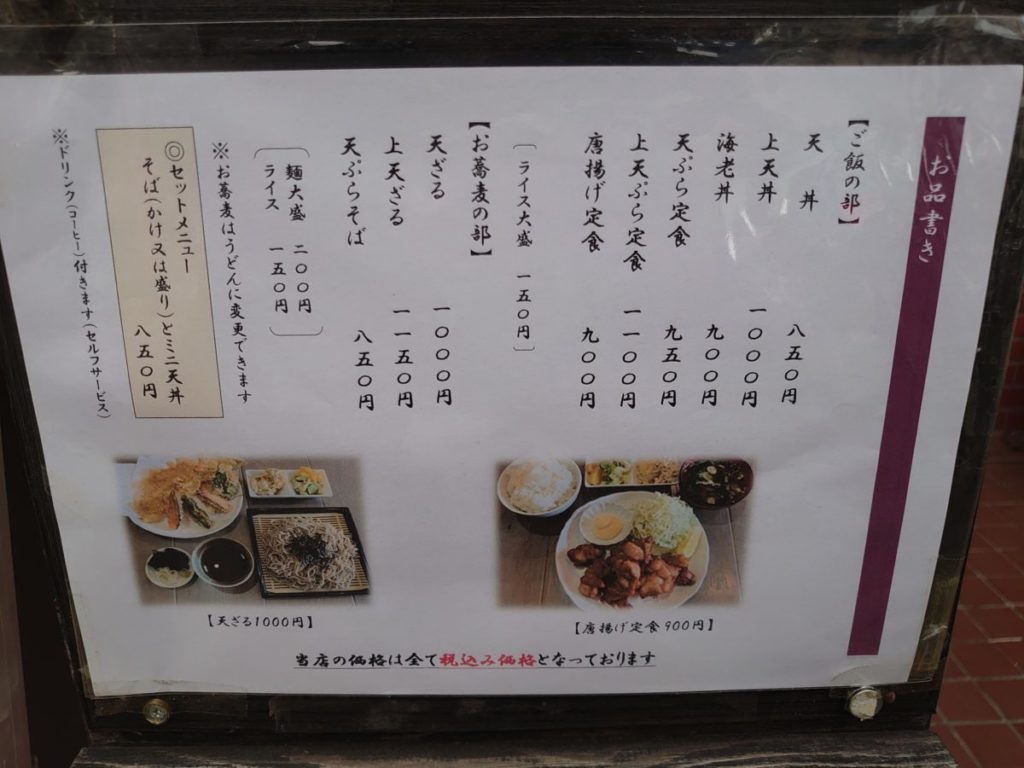 お品書き
【ご飯の部】
天丼 八五〇円
上天丼 一〇〇〇円
海老丼 九〇〇円
天ぷら定食 九五〇円
上天ぷら定食 一一〇〇円
唐揚げ定食 九〇〇円
〔ライス大盛 一五〇円〕
【お蕎麦の部】
天ざる 一〇〇〇円
上天ざる 一一五〇円
天ぷらそば 八五〇円
麺大盛 二〇〇円
ライス 一五〇円
※お蕎麦はうどんに変更できます
◎セットメニュー
そば(かけ又は盛り)とミニ天丼
八五〇円
※ドリンク(コーヒー)付きます(セルフサービス)
【天ざる1000円】
【唐揚げ定食900円】
当店の価格は全て税込み価格となっております